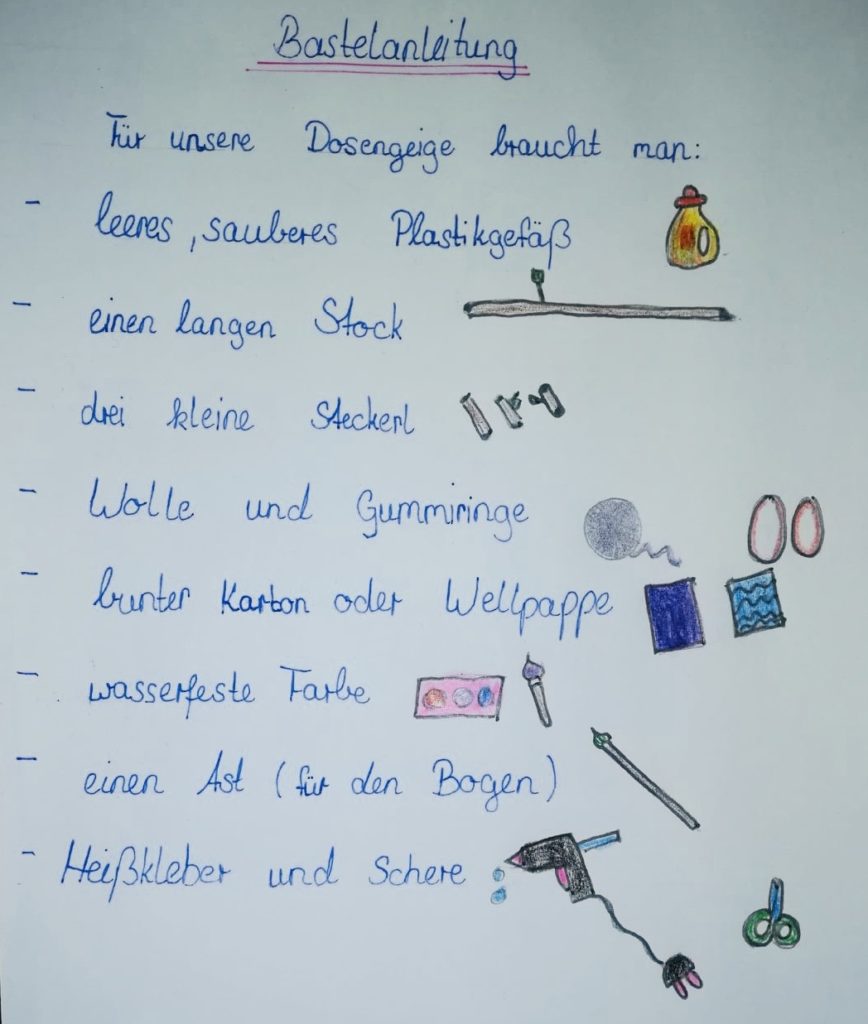 Bastelanleitung
Für unsere Dosengeige braucht man:
- leeres, sauberes Plastikgefäß
- einen langen Stock
- drei kleine Steckerl
- Wolle und Gummiringe
- bunter Karton oder Wellpappe
- wasserfeste Farbe
- einen Ast (für den Bogen)
- Heißkleber und Schere